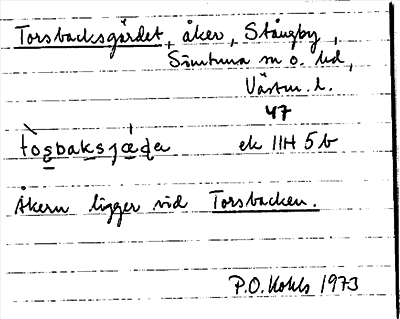 Torsbacksgärdet, åker, Stångby,
Simtuna sn o. hd,
Västm. l.
47
tòsbaksjæ̀ɖa ek 11H 5b
Åkern ligger vid Torsbacken.
P.O. Kohls 1973